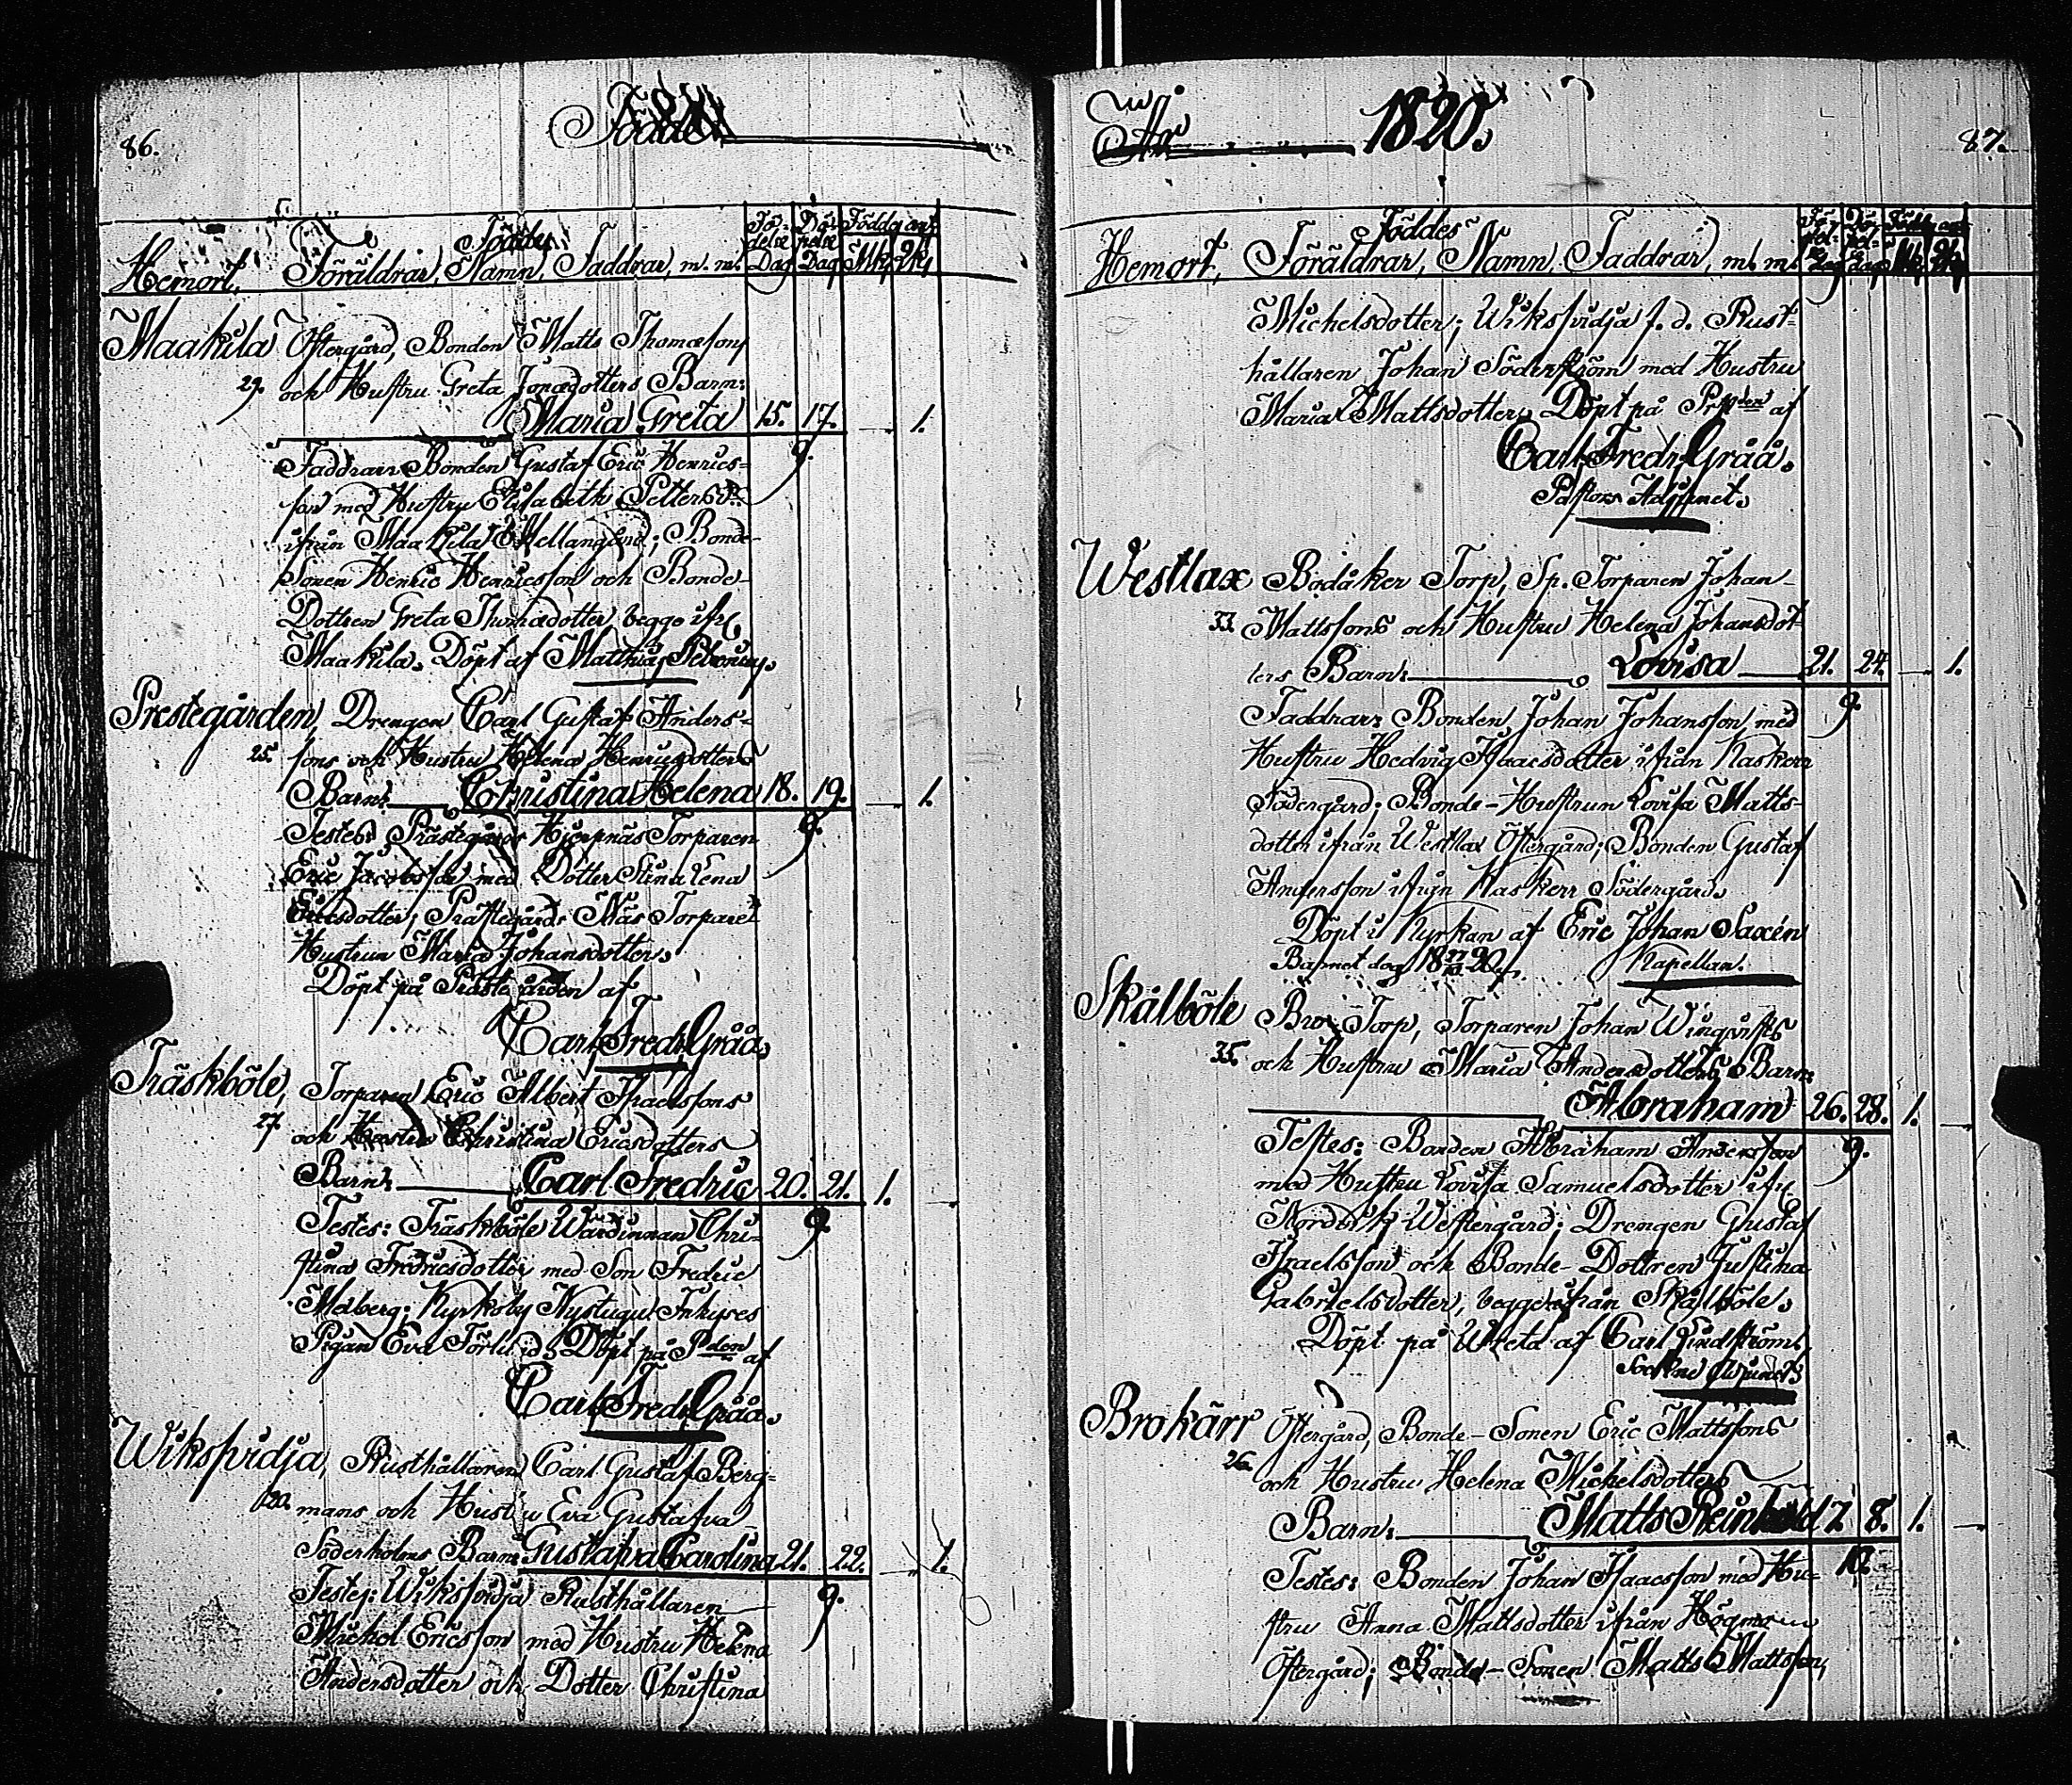 86.
Födde
Hemort, Födde
Föräldrar, Namn, Faddrar, m. m.
Fö-
delse
Dag
Dö-
pelse
Dag
Födde
Mk.
Qk.
Maakila Östergård, Bonden Matts Thomæsons
29. och Hustru Greta Jonædotters Barn:
Maria Greta 15. 17. — 1.
9.
Faddrar: Bonden Gustaf Eric Henrics-
son med Hustru Elisabeth Pettersdr
ifrån Maakila Mellangård; Bonde-
Sonen Henric Henricsson och Bonde-
Dottren Greta Thomædotter begge ifr.
Maakila. Döpt af Matthias
Prestegården, Drengen Carl Gustaf Anders-
25. sons och Hustru Helena Henricsdotters
Barn: Christina Helena 18. 19. — 1.
9.
Testes: Prästegårds Hjerpnäs Torparen
Eric Jacobsson med Dotter Stina Lena
Ericsdotter; Prästegårds Näs Torpare
Hustrun Maria Johansdotter.
Döpt på Prästegården af
Carl Fredr. Gråå.
Träskböle, Torparen Eric Albert Israelssons
27. och Hustru Christina Ericsdotters
Barn: Carl Fredric 20. 21. 1. —
9.
Testes: Träskböle Wärdinnan Chri-
stina Fredricsdotter med Son Fredric
Malberg; Kyrkoby Nystugu Inhyses
Pigan Eva Döpt på Pden af
Carl Fredr. Gråå.
Wiksvidja, Rusthållaren Carl Gustaf Berg-
20. mans och Hustru Eva Gustafva
Söderholms Barn: Gustafva Carolina 21. 22. — 1.
9.
Testes: Wiksvidja Rusthållaren
Michel Ericsson med Hustru Helena
Andersdotter och Dotter Christina
År 1820.
87.
Hemort, Föddes
Föräldrar, Namn, Faddrar, m. m.
Michelsdotter; Wiksvidja f. d. Rust-
hållaren Johan Söderström med Hustru
Maria Mattsdotter. Döpt på Prstden af
Carl Fredr. Gråå.
Pastors Adjunct.
Westlax Bodåker Torp, Sp. Torparen Johan
33. Mattssons och Hustru Helena Johansdot-
ters Barn: Lovisa 21. 24. — 1.
9.
Faddrar: Bonden Johan Johansson med
Hustru Hedvig Isaacsdotter ifrån Kaskerr
Södergård; Bonde-Hustrun Lovisa Matts-
dotter ifrån Westlax Östergård; Bonden Gustaf
Andersson ifrån Kaskerr Södergård.
Döpt i Kyrkan af Eric Johan Saxén
Barnet dog 18 20. Kapellan.
Skålböle Bro Torp, Torparen Johan Wingqvists
35. och Hustru Maria Andersdotters Barn:
Abraham 26. 28. 1. —
9.
Testes: Bonden Abraham Andersson
med Hustru Lovisa Samuelsdotter ifr.
Nordvik Westergård; Drengen Gustaf
Israelsson och Bonde-Dottren Justina
Gabrielsdotter, begge ifrån Skålböle.
Döpt på Wreta af Carl Lindström.
Sockne Adjunct.
Brokärr Östergård, Bonde-Sonen Eric Mattsons
26. och Hustru Helena Michelsdotters
Barn: Matts Reinhold 7. 8. 1. —
10.
Testes: Bonden Johan Isaacsson med Hu-
stru Anna Mattsdotter ifrån Högmo
Östergård; Bonde-Sonen Matts Mattsson,